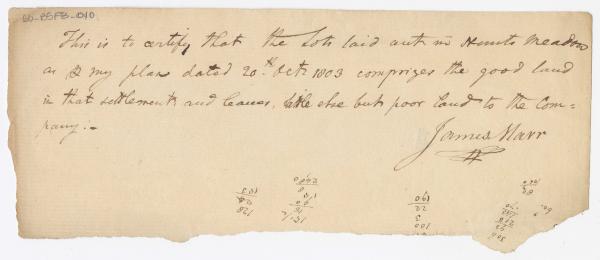 60-BSFB-010
This is to certify that the Lots laid out in Hunts Meadow
as & my plan dated 20.th Oct. 1803 comprizes the good land
in that settlement and leaves little else but poor land to the Com=
pany:-
James Marr